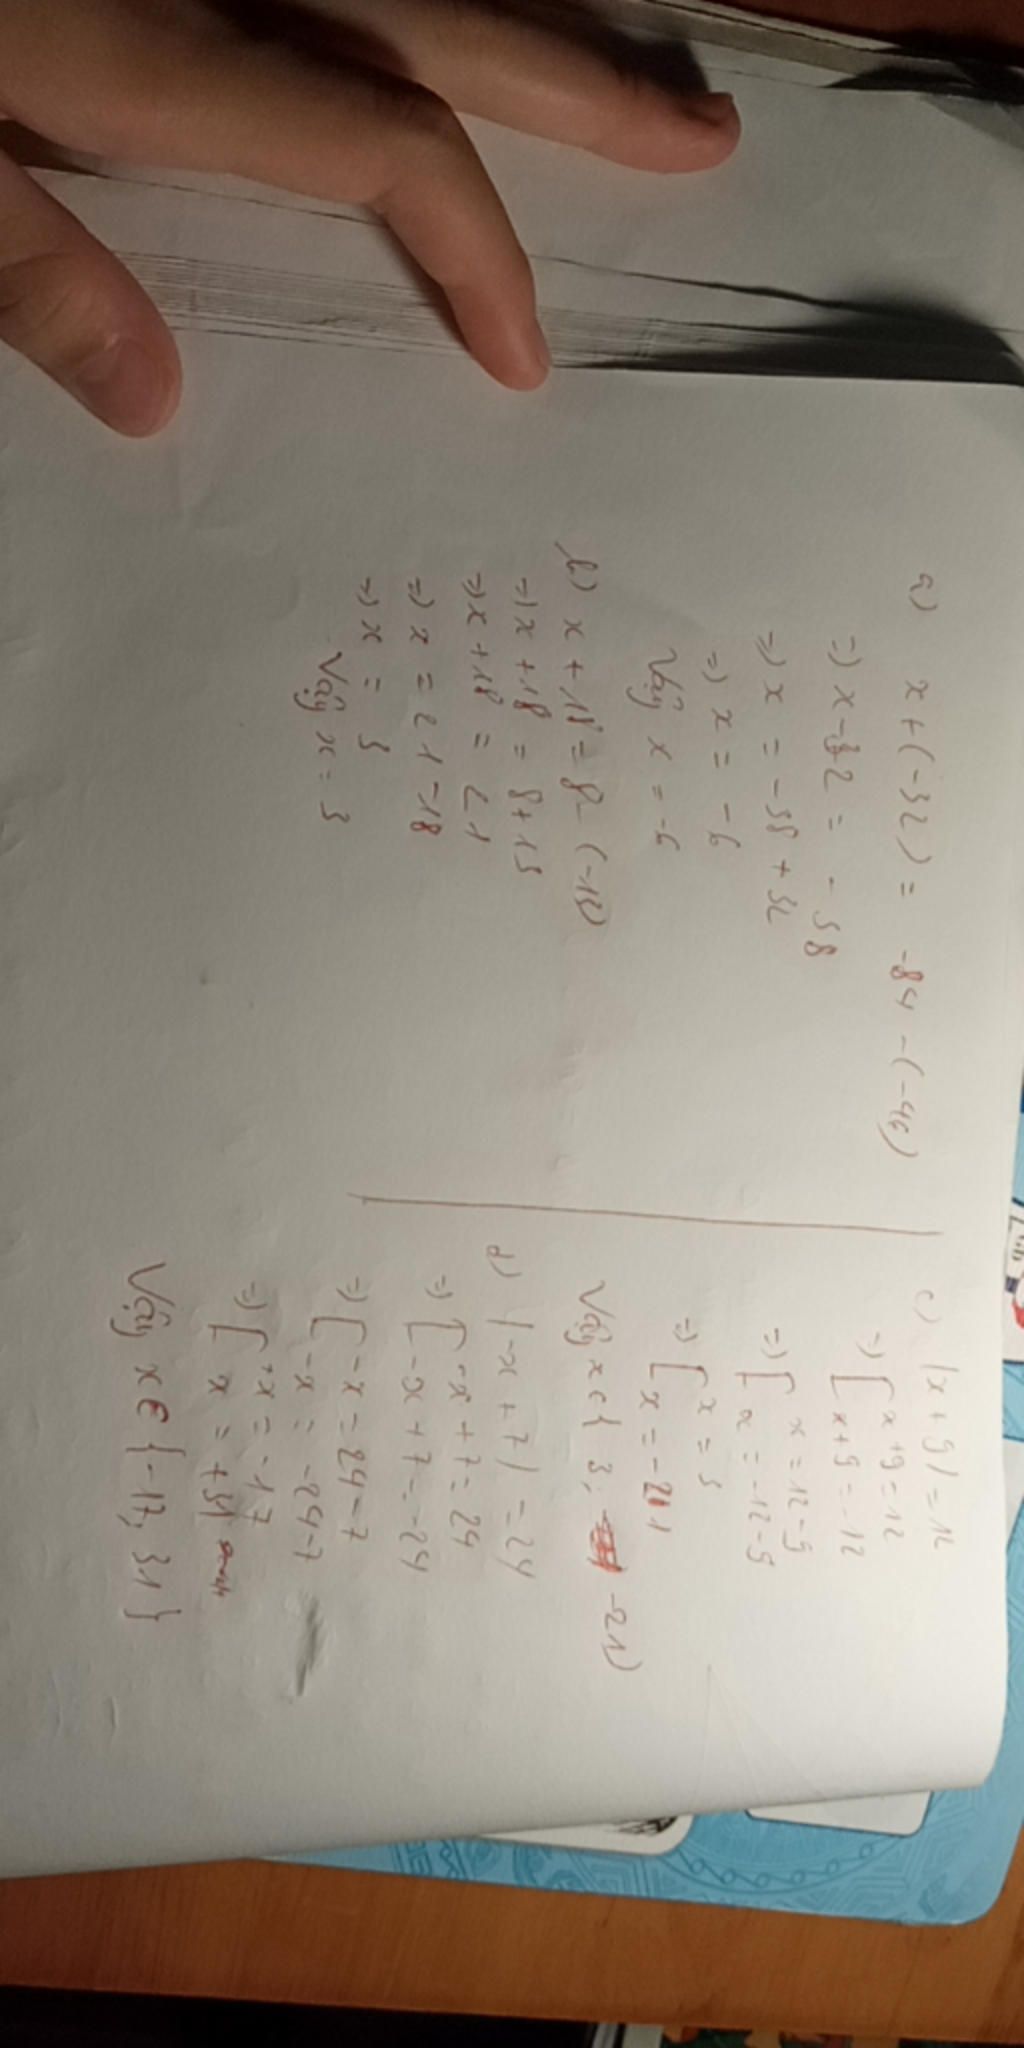 a) x + (-32) = -84 - (-46)
=> x - 32 = - 38
=> x = - 38 + 32
=> x = - 6
Vậy x = -6
b) x + 18 = 8 - (-13)
=> x + 18 = 8 + 13
=> x + 18 = 21
=> x = 21 - 18
=> x = 3
Vậy x = 3
c) |x + 9| = 12
=> [ x + 9 = 12
x + 9 = -12
=> [ x = 12 - 9
x = -12 - 9
=> [ x = 3
x = -21
Vậy x ∈ { 3; -21}
d) |-x + 7| = 24
=> [ -x + 7 = 24
-x + 7 = -24
=> [ -x = 24 - 7
-x = -24 - 7
=> [ x = -17
x = +31
Vậy x ∈ {-17; 31}